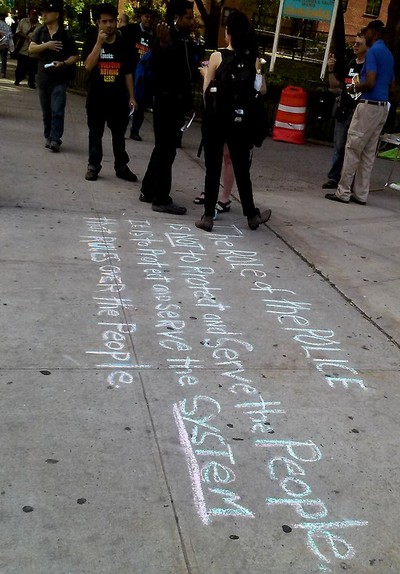 The ROLE of the POLICE
is NOT to Protect and Serve the People
It is to Protect and serve the SYSTEM
that RULES over the People.
NOTHING
LESS!